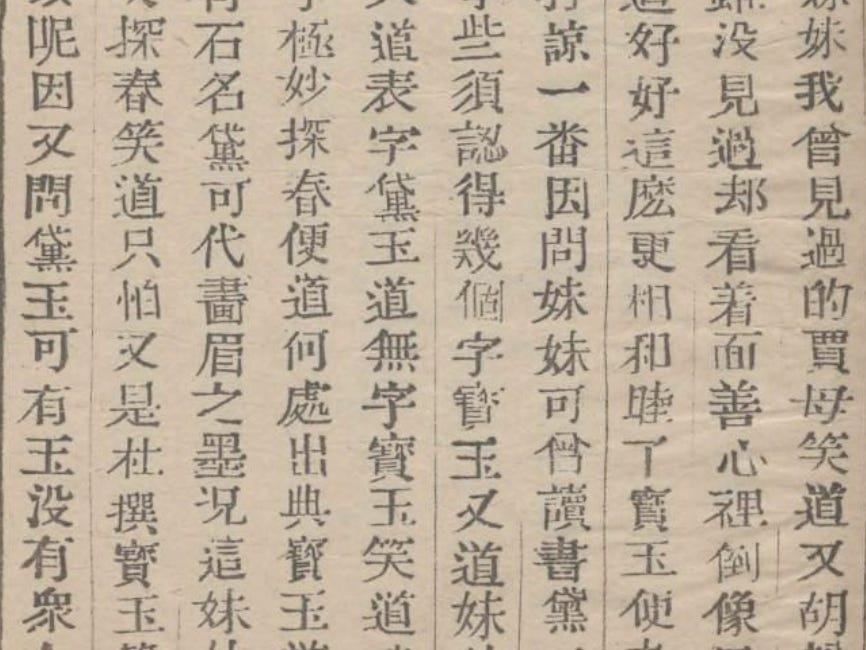 妹妹我曾見過的賈母笑道又胡
没見過却看着面善心裡倒像
好好這麽更相和睦了寳玉便
諒一畨因問妹妹可曾讀書黛
些須認得幾個字寳玉又道妹
道表字黛玉道無字寳玉笑道
極妙探春便道何處出典寳玉
石名黛可代畵眉之墨况這妹
探春笑道只怕又是杜撰寳玉
呢因又問黛玉可有玉没有衆